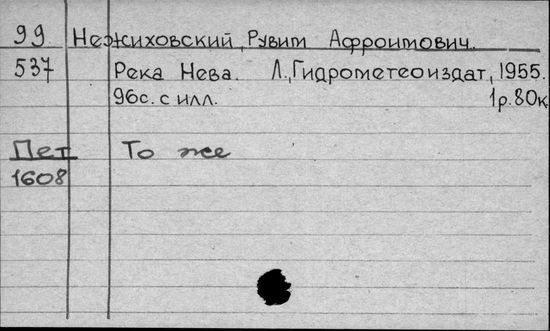 99 Нежиховский, Рувим Афроимович.
537 Река Нева. Л., Гидрометеоиздат, 1955.
96с. с илл. 1р.80к
Пет То же
1608